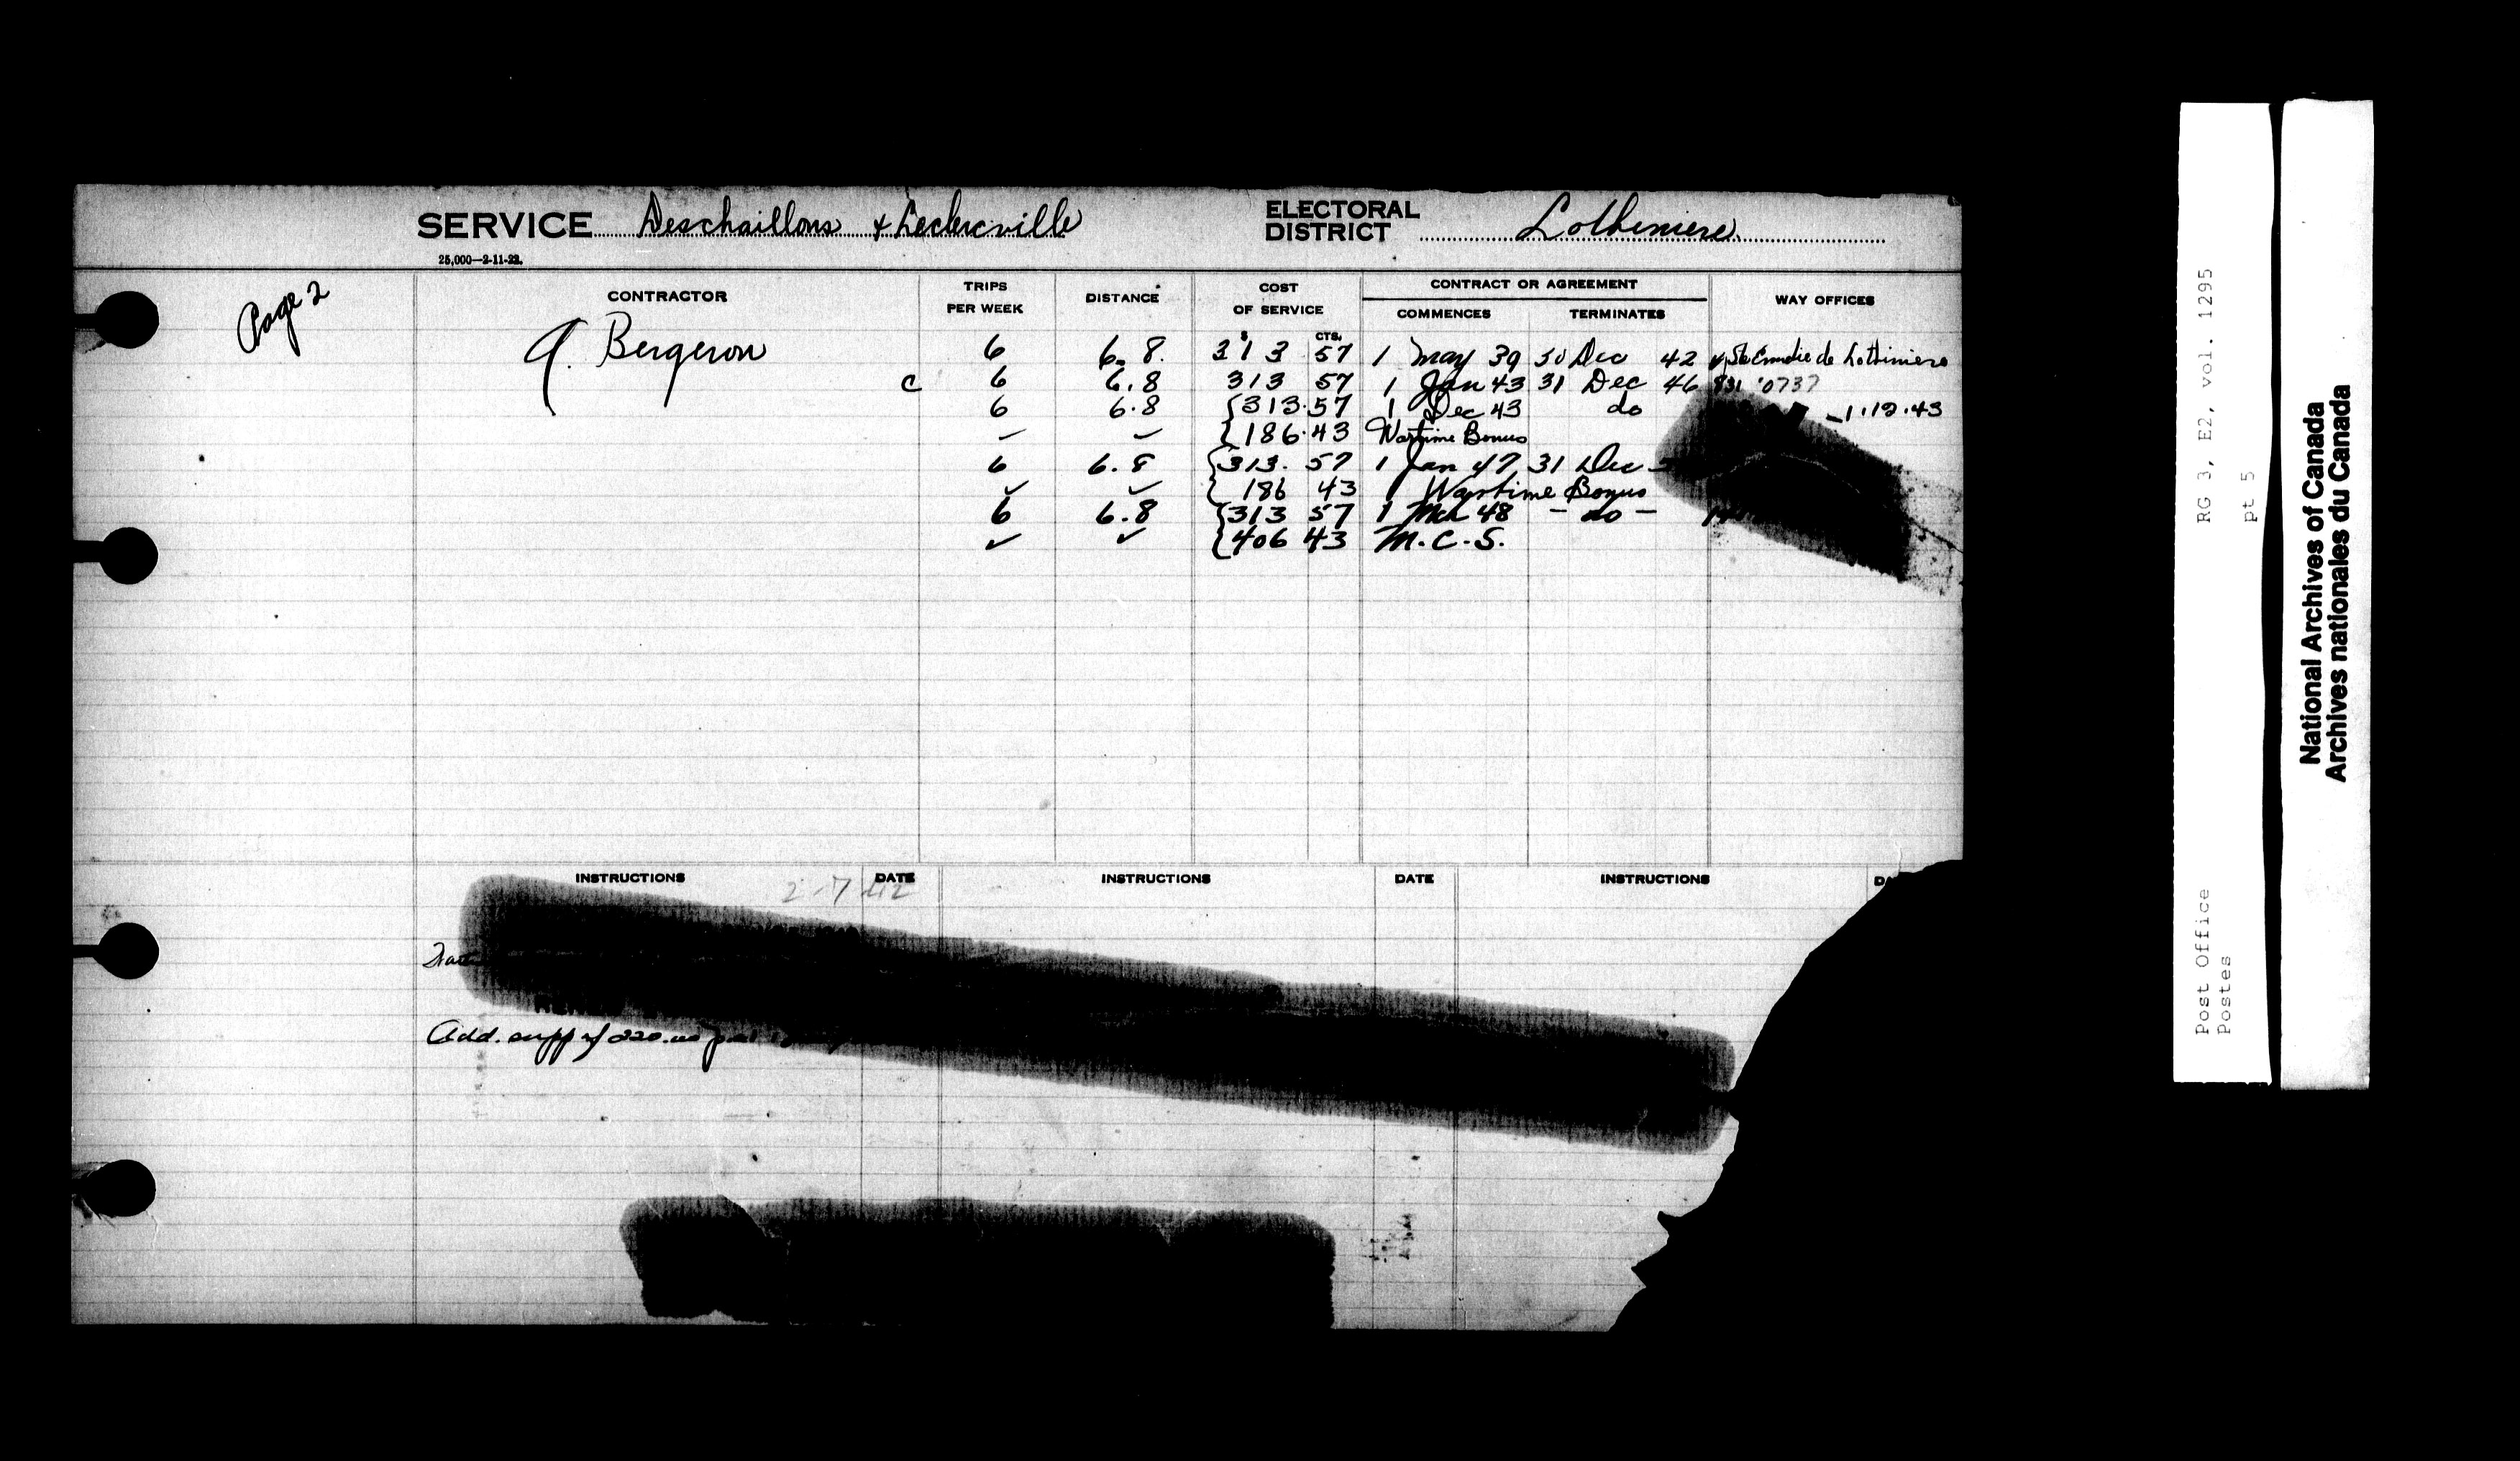 SERVICE Deschaillons & Leclercville ELECTORAL DISTRICT Lotbiniere
25,000—2-11-22.
Page 2
CONTRACTOR TRIPS PER WEEK DISTANCE COST OF SERVICE CONTRACT OR AGREEMENT COMMENCES TERMINATES WAY OFFICES
$ CTS.
A. Bergeron 6 6.8 313 57 1 May 39 30 Dec 42 Ste Emelie de Lotbiniere
c 6 6.8 313 57 1 Jan 43 31 Dec 46 831 '0737
6 6.8 {313.57 1 Dec 43 do 1.12.43
{186.43 Wartime Bonus
6 6.8 {313.57 1 Jan 47 31 Dec
✓ ✓ {186 43 Wartime Bonus
6 6.8 {313 57 1 Mch 48 - do -
✓ ✓ {406 43 M.C.S.
INSTRUCTIONS DATE INSTRUCTIONS DATE INSTRUCTIONS
2-7
Add. supp of 220.00
RG 3, E2, vol. 1295
pt 5
Post Office
Postes
National Archives of Canada
Archives nationales du Canada